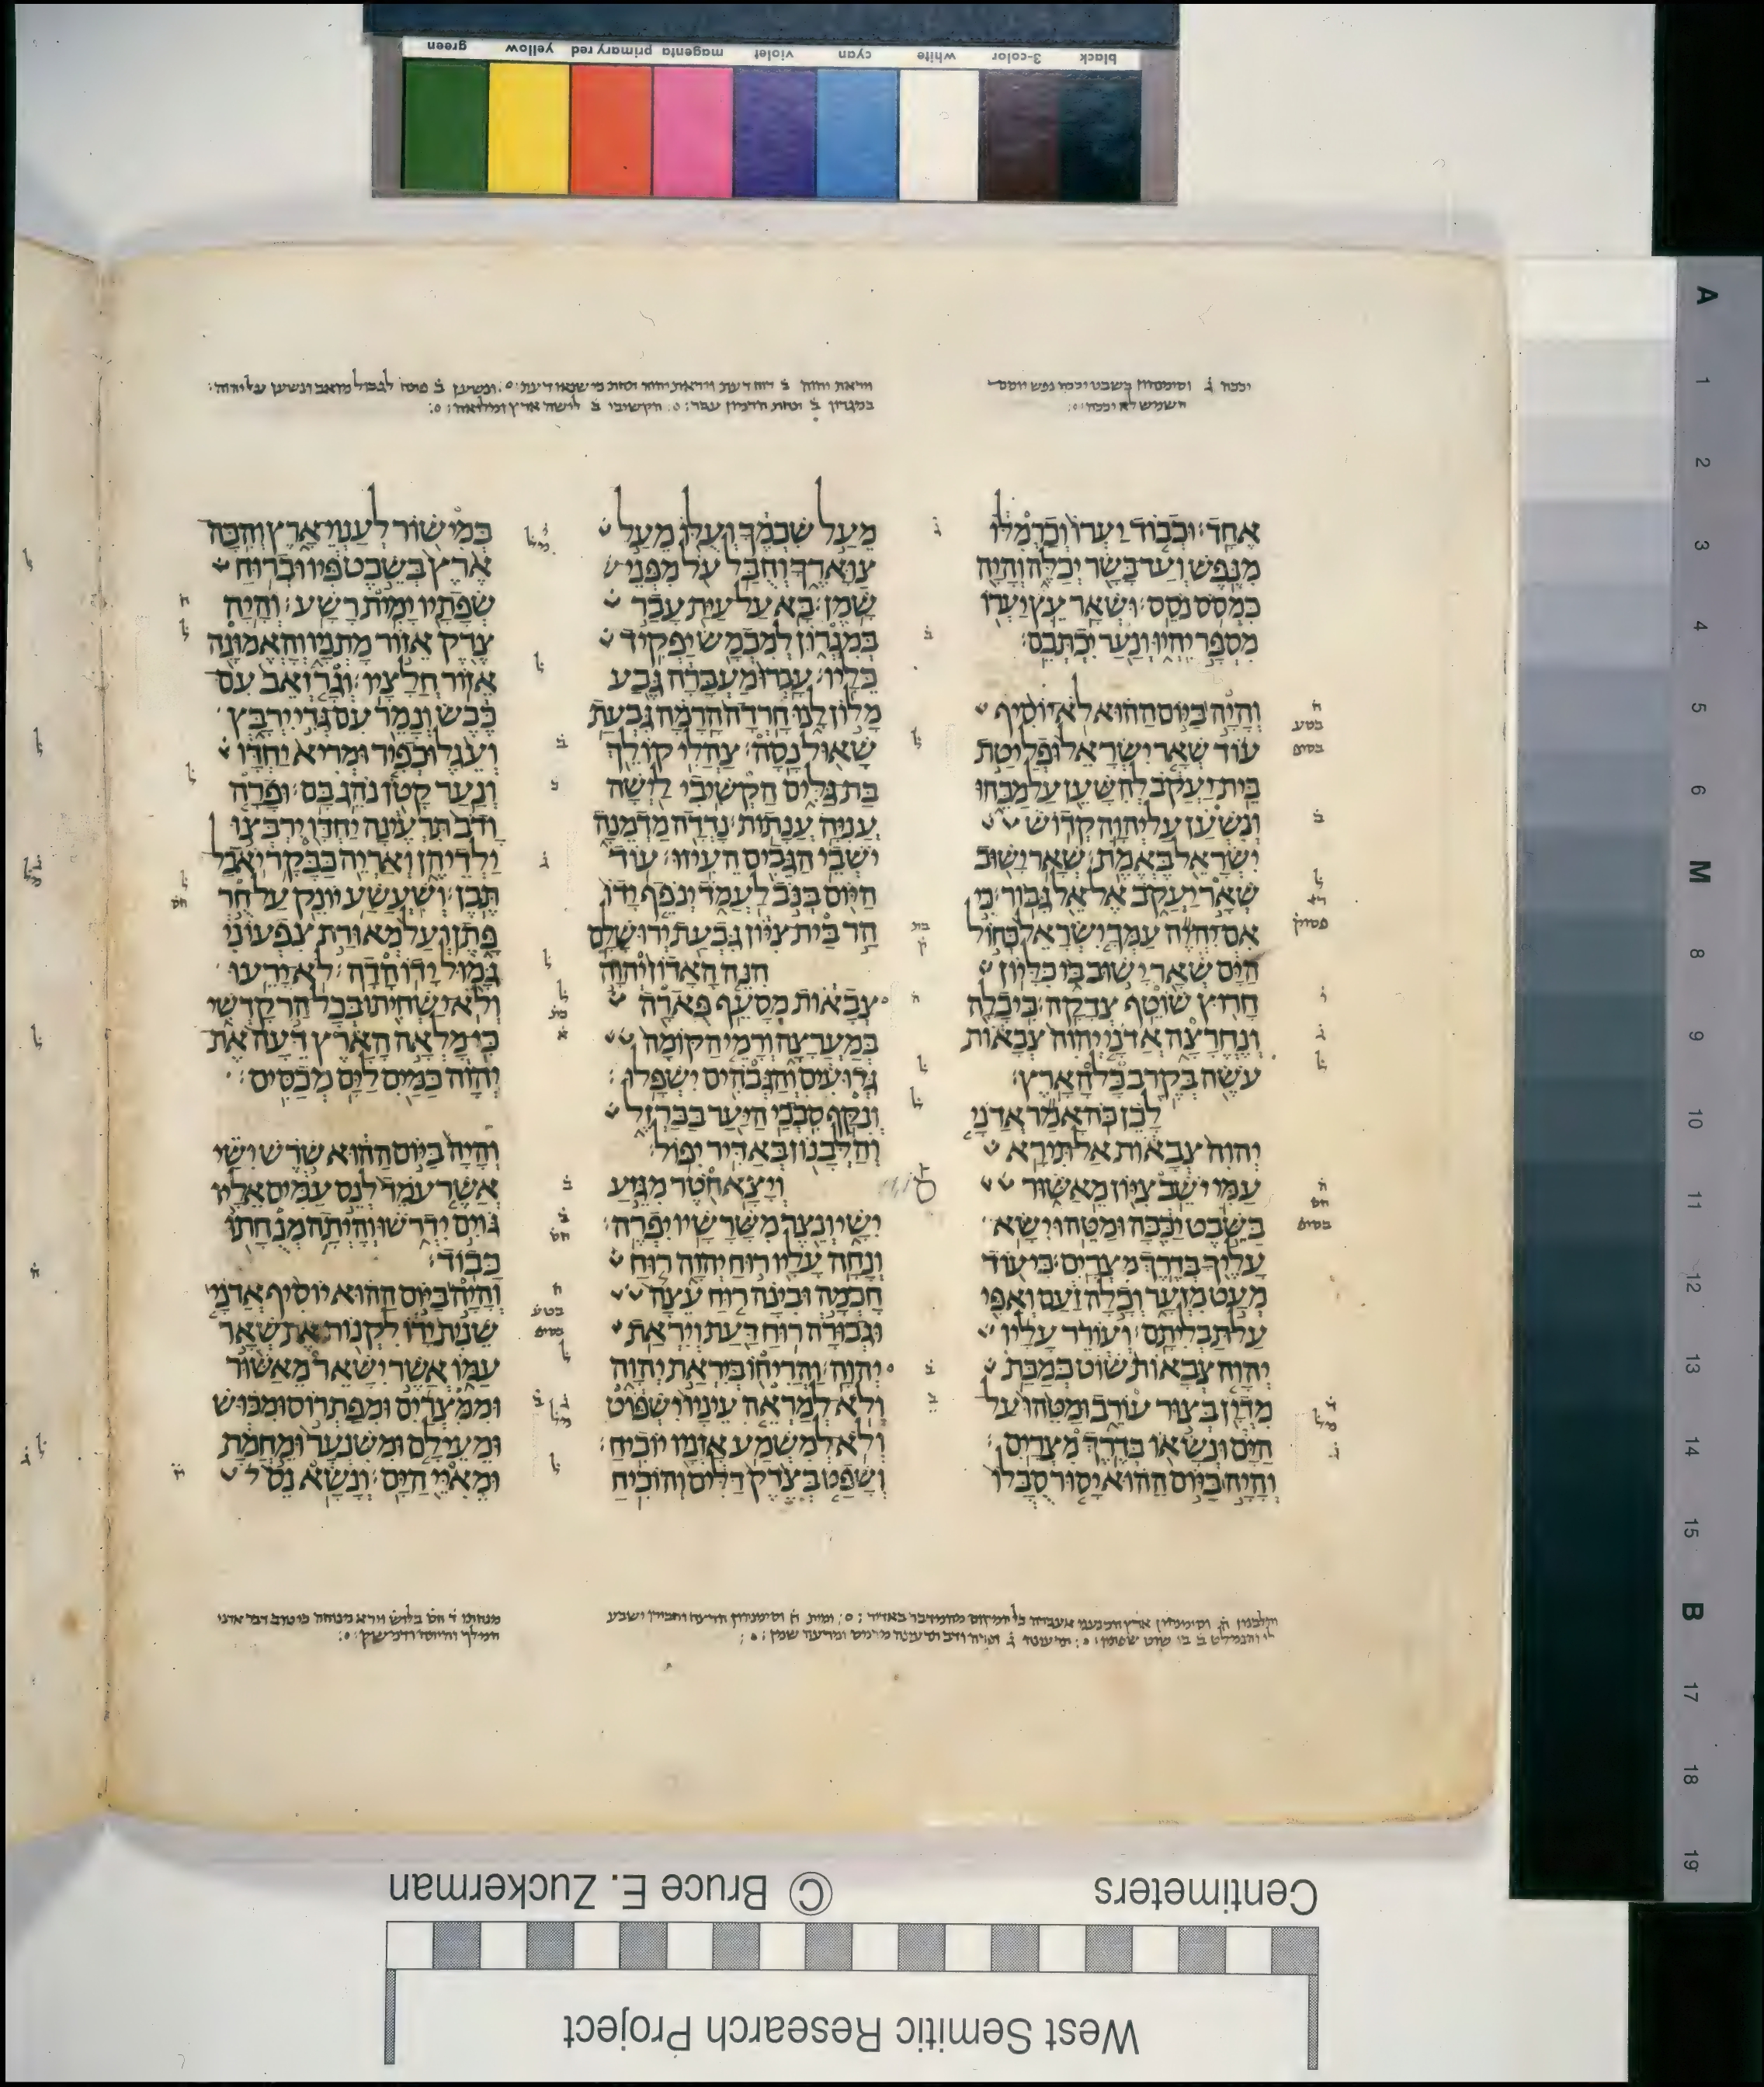 green yellow primary red magenta violet cyan white 3-color black
יככה ג̇ וסימנהון בשבט יככה נפש
השמש לא יככה
ויראת יהוה ב̇ רוח דעת ויראת יהוה תחת כי שנאו דעת ונשען ב̇ לגבול מואב ונשען על יהוה
במגרון ב̇ תחת הרמון הקשיבי ב̇ לישה ארץ ומלואה
אחד׃ וכבוד יערו וכרמלו
מנפש ועד בשר יכלה והיה
כמסס נסס׃ ושאר עץ יערו
מספר יהיו ונער יכתבם׃
והיה ביום ההוא לא יוסיף
עוד שאר ישראל ופליטת
בית יעקב להשען על מכהו
ונשען על יהוה קדוש
ישראל באמת׃ שאר ישוב
שאר יעקב אל אל גבור׃ כי
אם יהיה עמך ישראל כחול
הים שאר ישוב בו כליון
חרוץ שוטף צדקה׃ כי כלה
ונחרצה אדני יהוה צבאות
עשה בקרב כל הארץ׃
לכן כה אמר אדני
יהוה צבאות אל תירא
עמי ישב ציון מאשור
בשבט יככה ומטהו ישא
עליך בדרך מצרים׃ כי עוד
מעט מזער וכלה זעם ואפי
על תבליתם׃ ועורר עליו
יהוה צבאות שוט כמכת
מדין בצור עורב ומטהו על
הים ונשאו בדרך מצרים׃
והיה ביום ההוא יסור סבלו
מעל שכמך ועלו מעל
צוארך וחבל על מפני
שמן׃ בא על עית עבר
במגרון למכמש יפקיד
כליו׃ עברו מעברה גבע
מלון לנו חרדה הרמה גבעת
שאול נסה׃ צהלי קולך
בת גלים הקשיבי לישה
עניה ענתות׃ נדדה מדמנה
ישבי הגבים העיזו׃ עוד
היום בנב לעמד ינפף ידו
הר בית ציון גבעת ירושלם
הנה האדון יהוה
צבאות מסעף פארה
במערצה ורמי הקומה
גדועים והגבהים ישפלו׃
ונקף סבכי היער בברזל
והלבנון באדיר יפול׃
ויצא חטר מגזע
ישי ונצר משרשיו יפרה׃
ונחה עליו רוח יהוה רוח
חכמה ובינה רוח עצה
וגבורה רוח דעת ויראת
יהוה׃ והריחו ביראת יהוה
ולא למראה עיניו ישפוט
ולא למשמע אזניו יוכיח׃
ושפט בצדק דלים והוכיח
במישור לענוי ארץ והכה
ארץ בשבט פיו וברוח
שפתיו ימית רשע׃ והיה
צדק אזור מתניו והאמונה
אזור חלציו׃ וגר זאב עם
כבש ונמר עם גדי ירבץ
ועגל וכפיר ומריא יחדו
ונער קטן נהג בם׃ ופרה
ודב תרעינה יחדו ירבצו
ילדיהן ואריה כבקר יאכל
תבן׃ ושעשע יונק על חר
פתן ועל מאורת צפעוני
גמול ידו הדה׃ לא ירעו
ולא ישחיתו בכל הר קדשי
כי מלאה הארץ דעה את
יהוה כמים לים מכסים׃
והיה ביום ההוא שרש ישי
אשר עמד לנס עמים אליו
גוים ידרשו והיתה מנחתו
כבוד׃
והיה ביום ההוא יוסיף אדני
שנית ידו לקנות את שאר
עמו אשר ישאר מאשור
וממצרים ומפתרוס ומכוש
ומעילם ומשנער ומחמת
ומאיי הים׃ ונשא נס ל
Centimeters
© Bruce E. Zuckerman
West Semitic Research Project
A 1 2 3 4 5 6 M 8 9 10 11 12 13 14 15 B 17 18 19